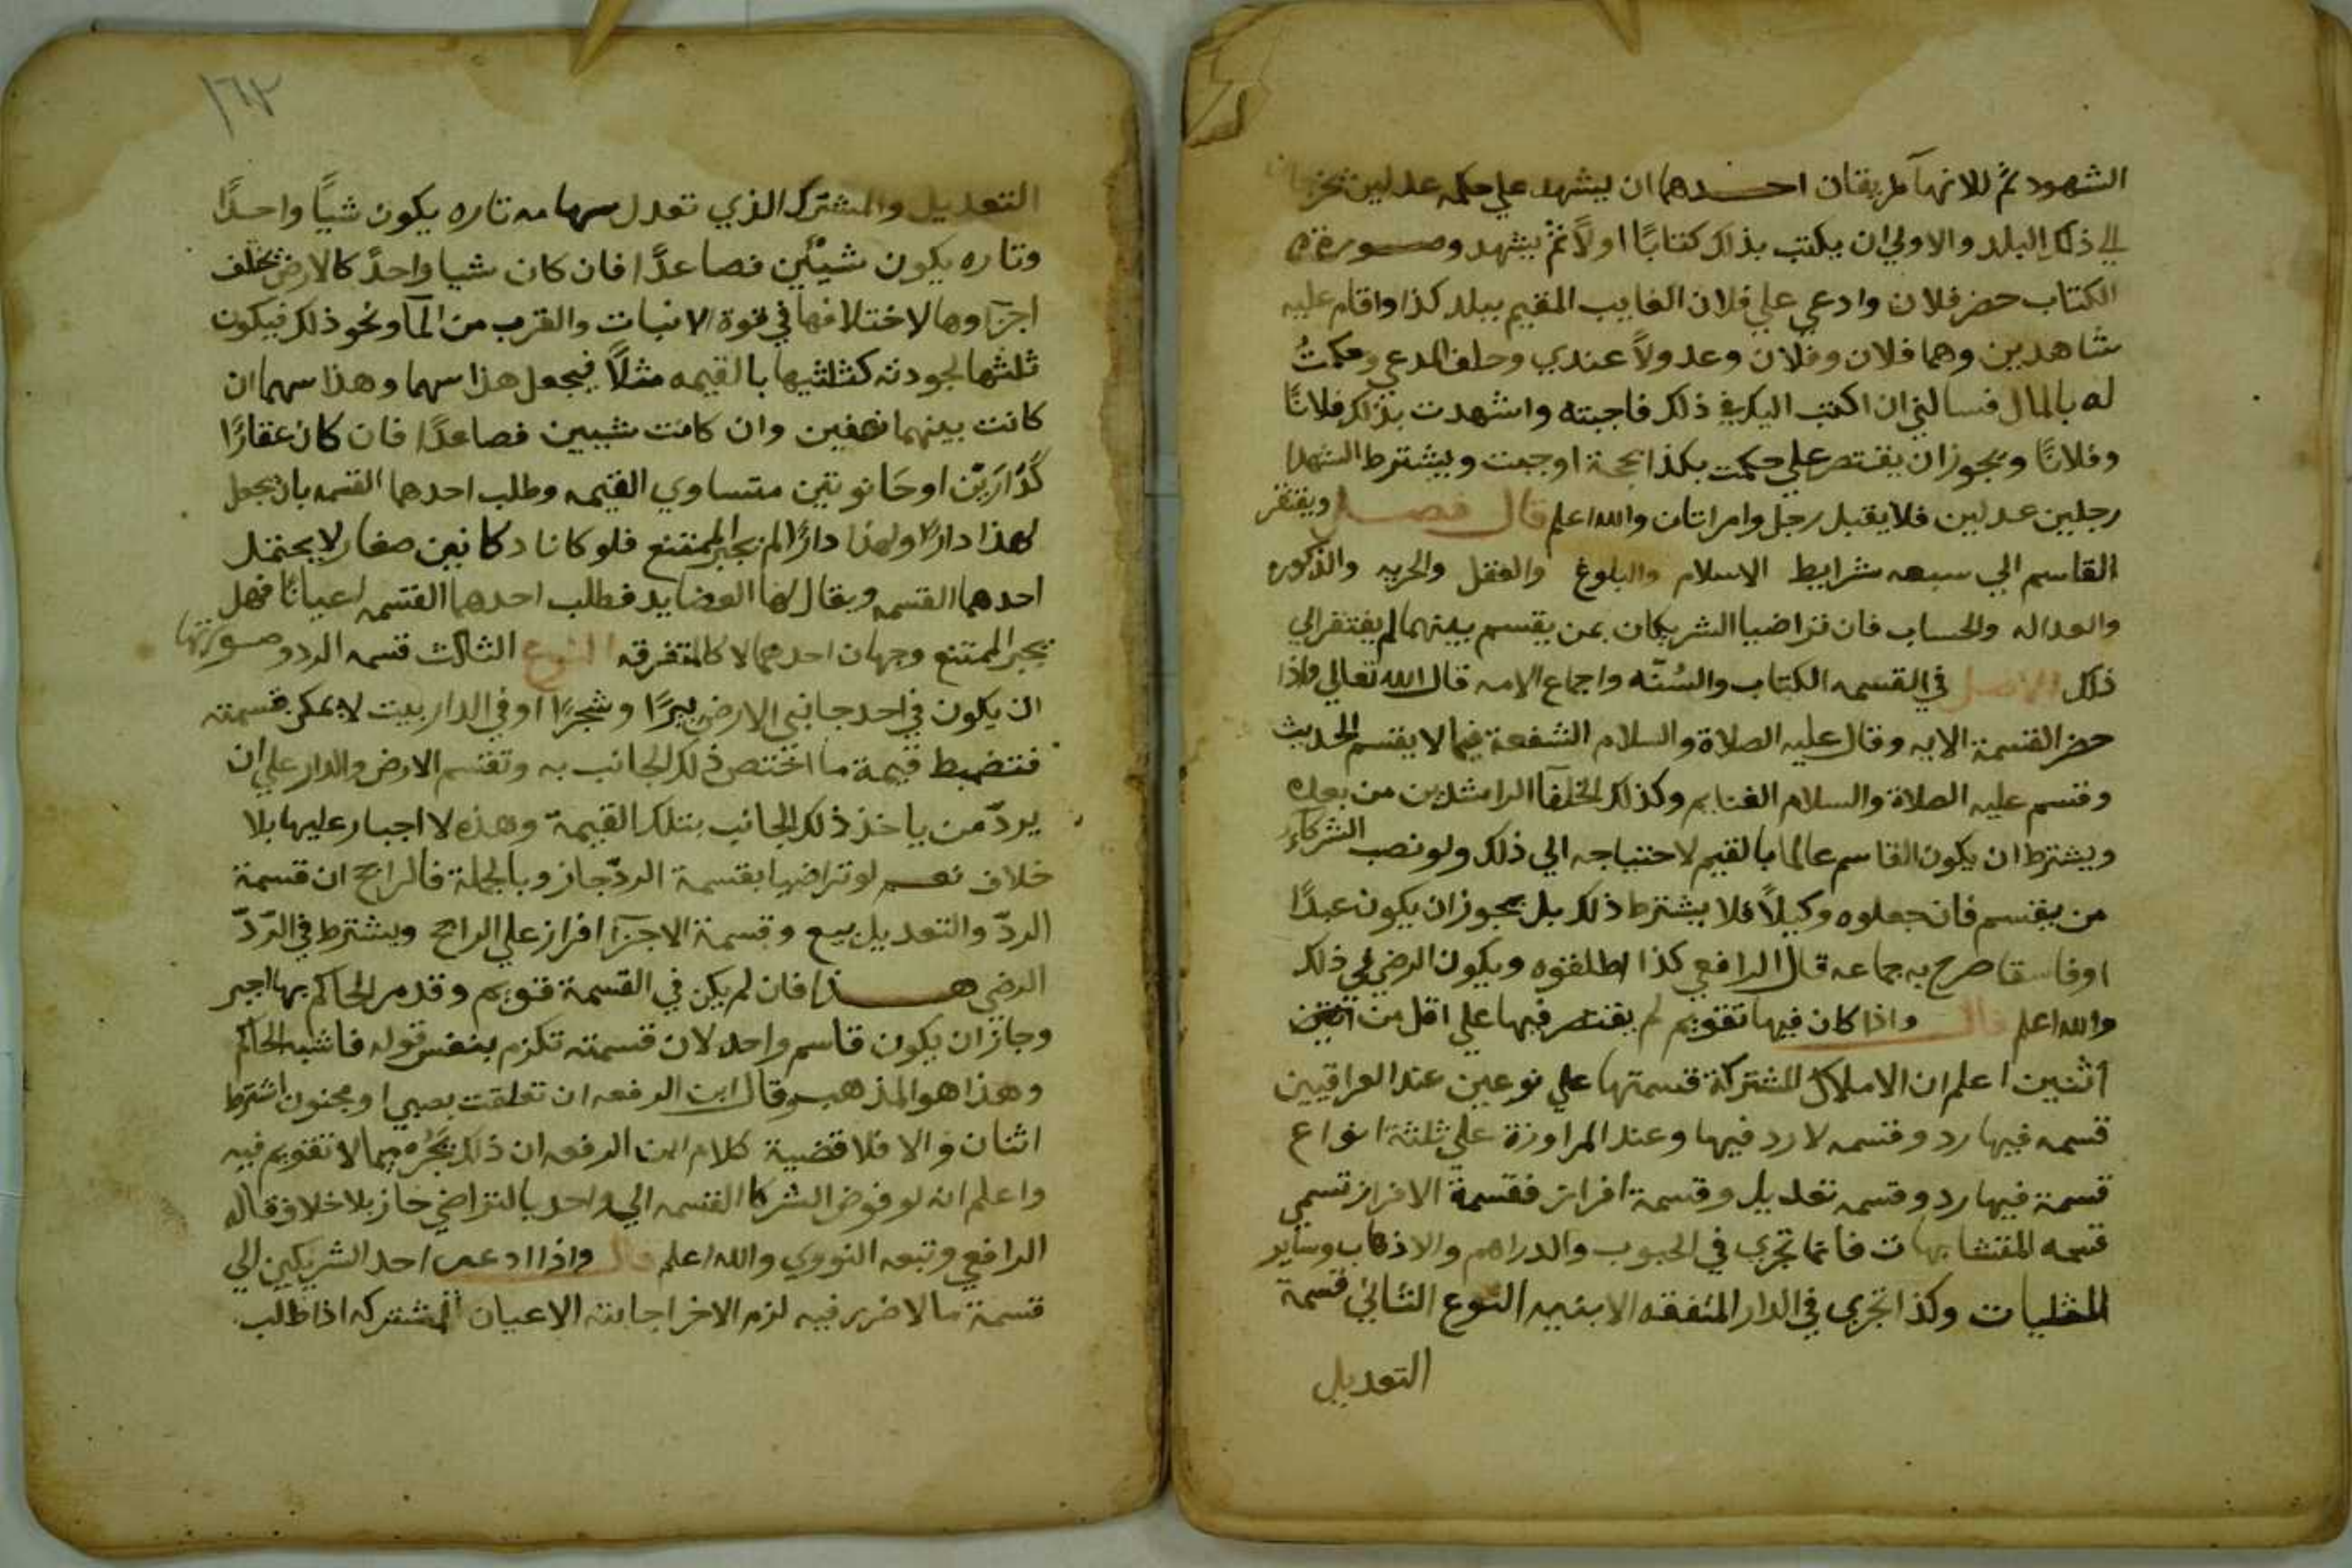 الشهود ثم للانهآ طريقان احدهما ان يشهد علي حكمه عدلين يخرجان
الي ذلك البلد والاولي ان يكتب بذلك كتابًا اولاً ثم يشهد وصورة
الكتاب حضر فلان وادعي علي فلان الغايب المقيم ببلد كذا واقام عليه
شاهدين وهما فلان وفلان وعدولاً عندي وحلف المدعي وحكمتُ
له بالمال فسالني ان اكتب اليك في ذلك فاجبته واشهدت بذلك فلانًا
وفلانًا ويجوز ان يقتصر علي حكمت بكذا بحجة اوجبت ويشترط الشهدا
رجلين عدلين فلا يقبل رجل وامراتان والله اعلم قال فصل ويفتقر
القاسم الي سبعه شرايط الاسلام والبلوغ والعقل والحريه والذكوره
والعداله والحساب فان تراضيا الشريكان بمن يقسم بينهما لم يفتقر الي
ذلك الاصل في القسمه الكتاب والسُنّه واجماع الامه قال الله تعالي واذا
حضر القسمة الايه وقال عليه الصلاة والسلام الشفعة فيما لا يقسم الحديث
وقسم عليه الصلاة والسلام الغنايم وكذلك الخلفآ الراشدين من بعده
ويشترط ان يكون القاسم عالما بالقيم لاحتياجه الي ذلك ولو نصب الشركآء
من يقسم فان جعلوه وكيلاً فلا يشترط ذلك بل يجوز ان يكون عبدًا
او فاسقا صرح به جماعه قال الرافعي كذا اطلقوه ويكون الرضي في ذلك
والله اعلم قال واذا كان فيها تقويم لم يقتصر فيها علي اقل من اثنين
اثنين اعلم ان الاملاك المشتركة قسمتها علي نوعين عند العراقيين
قسمه فيها رد وقسمه لا رد فيها وعند المراوزة علي ثلثة انواع
قسمة فيها رد وقسمه تعديل وقسمة افراز فقسمة الافراز تسمي
قسمه المتشابهات فانما تجري في الحبوب والدراهم والادهاب وساير
المثليات وكذا تجري في الدار المتفقه الابنيه النوع الثاني قسمة
التعديل
١٦٢
التعديل والمشترك الذي تعدل سهامه تاره يكون شيأً واحدًا
وتاره يكون شيئين فصاعدًا فان كان شيا واحدً كالارض تختلف
اجزآوها لاختلافها في قوة الانبات والقرب من المآ ونحو ذلك فيكون
ثلثها لجودته كثلثيها بالقيمه مثلاً فيجعل هذا سهما وهذا سهما ان
كانت بينهما نصفين وان كانت شيين فصاعدًا فان كان عقارًا
كَدَارَيْن او حَانوتين متساوي القيمه وطلب احدهما القسمه بان يجعل
لهذا دارًا ولهذا دارًا لم يجبر الممتنع فلو كانا دكانين صغار لا يحتمل
احدهما القسمه ويقال لها العضايد فطلب احدهما القسمه اعيانًا فهل
يجبر الممتنع وجهان احدهما لا كالمتفرقه النوع الثالث قسمه الرد وصورتها
ان يكون في احد جانبي الارض بيرًا وشجرًا او في الدار بيت لا يمكن قسمته
فتضبط قيمة ما اختص ذلك الجانب به وتقسم الارض والدار علي ان
يردّ من ياخذ ذلك الجانب بتلك القيمة وهذه لا اجبار عليها بلا
خلاف نعم لو تراضيا بقسمة الردّ جاز وبالجملة فالراجح ان قسمة
الردّ والتعديل بيع وقسمة الاجزآ افراز علي الراجح ويشترط في الرّدّ
الرضي هذا فان لم يكن في القسمة تقويم وقدم الحاكم بها اجبر
وجاز ان يكون قاسم واحد لان قسمته تلزم بنفس قوله فاشبه الحاكم
وهذا هو المذهب وقال ابن الرفعه ان تعلقت بصبي او مجنون اشترط
اثنان والا فلا قضية كلام ابن الرفعه ان ذلك يجزه فيما لا تقويم فيه
واعلم انه لو فوض الشركا القسمه الي واحد بالتراضي جاز بلا خلاف قاله
الرافعي وتبعه النووي والله اعلم قال واذا ادعي احد الشريكين الي
قسمة ما لا ضرر فيه لزم الاخر اجابته الاعيان المشتركه اذا طلب